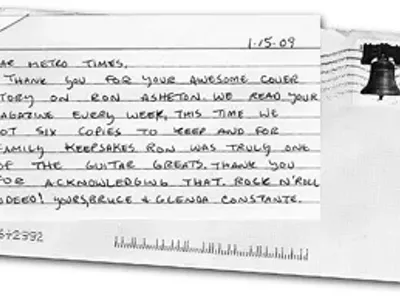 1-15-09
AR METRO TIMES,
THANK YOU FOR YOUR AWESOME COVER
TORY ON RON ASHETON. WE READ YOUR
AGAZINE EVERY WEEK, THIS TIME WE
OT SIX COPIES TO KEEP AND FOR
FAMILY KEEPSAKES. RON WAS TRULY ONE
OF THE GUITAR GREATS. THANK YOU
FOR ACKNOWLEDGING THAT. ROCK N'ROLL
NDEED! YOURS, BRUCE & GLENDA CONSTANTE.